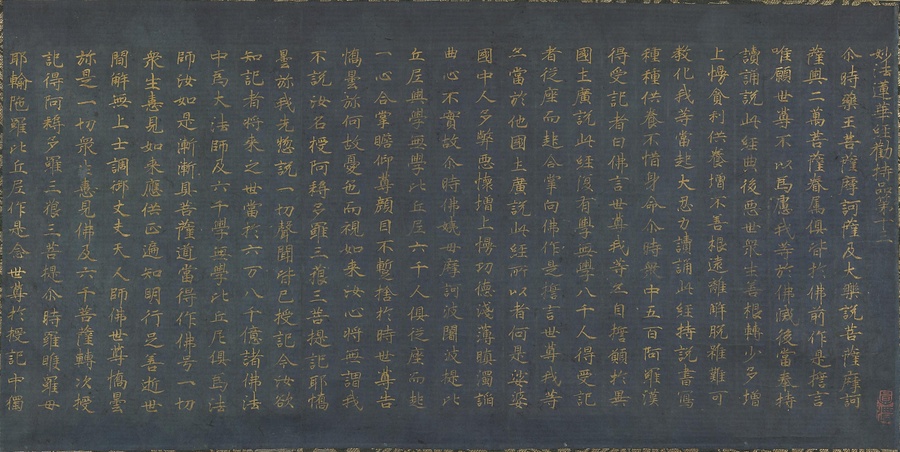 妙法蓮華経勧持品第十二
尒時藥王菩薩摩訶薩及大樂說菩薩摩訶
薩與二萬菩薩眷属俱皆於佛前作是誓言
唯願世尊不以為慮我等於佛滅後當奉持
讀誦說此経典後悪世衆生善根轉少多増
上慢貪利供養増不善根遠離解脱雖難可
教化我等當起大忍力讀誦此経持說書寫
種種供養不惜身命尒時衆中五百阿羅漢
得受記者白佛言世尊我等亦自誓願於異
國土廣說此経復有學無學八千人得受記
者從座而起合掌向佛作是誓言世尊我等
亦當於他國土廣說此経所以者何是娑婆
國中人多弊悪懐増上慢功徳淺薄瞋濁諂
曲心不實故尒時佛姨母摩訶波闍波提比
丘尼與學無學比丘尼六千人俱從座而起
一心合掌瞻仰尊顔目不暫捨於時世尊告
憍曇弥何故憂色而視如来汝心將無謂我
不說汝名授阿耨多羅三藐三菩提記耶憍
曇弥我先惣說一切聲聞皆已授記今汝欲
知記者將来之世當於六万八千億諸佛法
中為大法師及六千學無學比丘尼俱為法
師汝如是漸漸具菩薩道當得作佛号一切
衆生憙見如来應供正遍知明行足善逝世
間解無上士調御丈夫天人師佛世尊憍曇
弥是一切衆生憙見佛及六千菩薩轉次授
記得阿耨多羅三藐三菩提尒時羅睺羅母
耶輸陁羅比丘尼作是念世尊於授記中獨